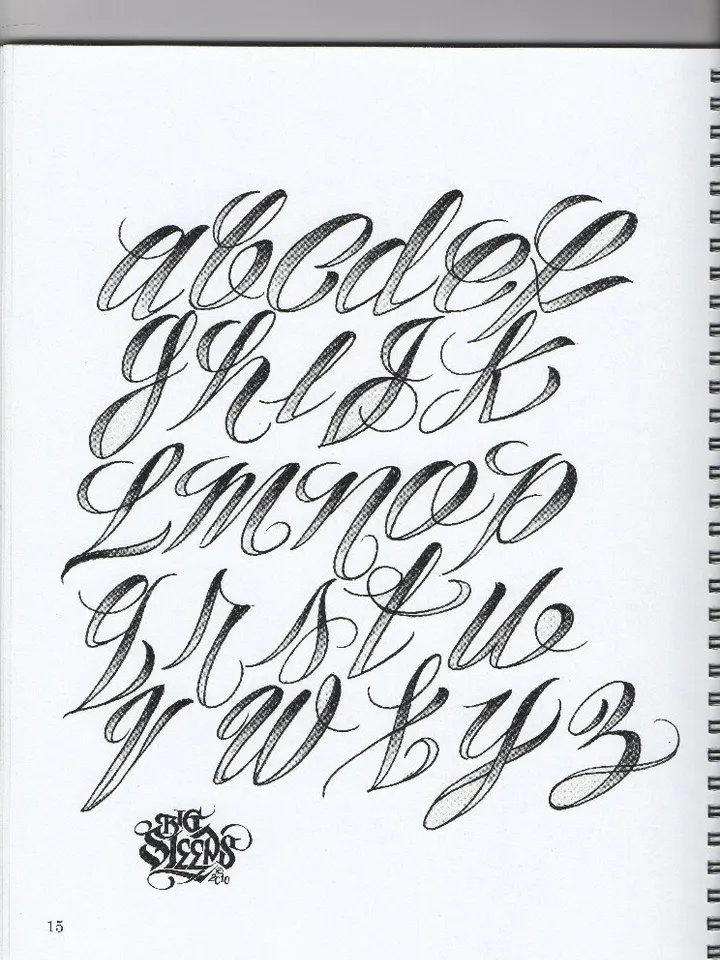 abcdef
ghijk
Lmnop
qrstu
vwxyz
BIG
SLEEPS
© 2010
15